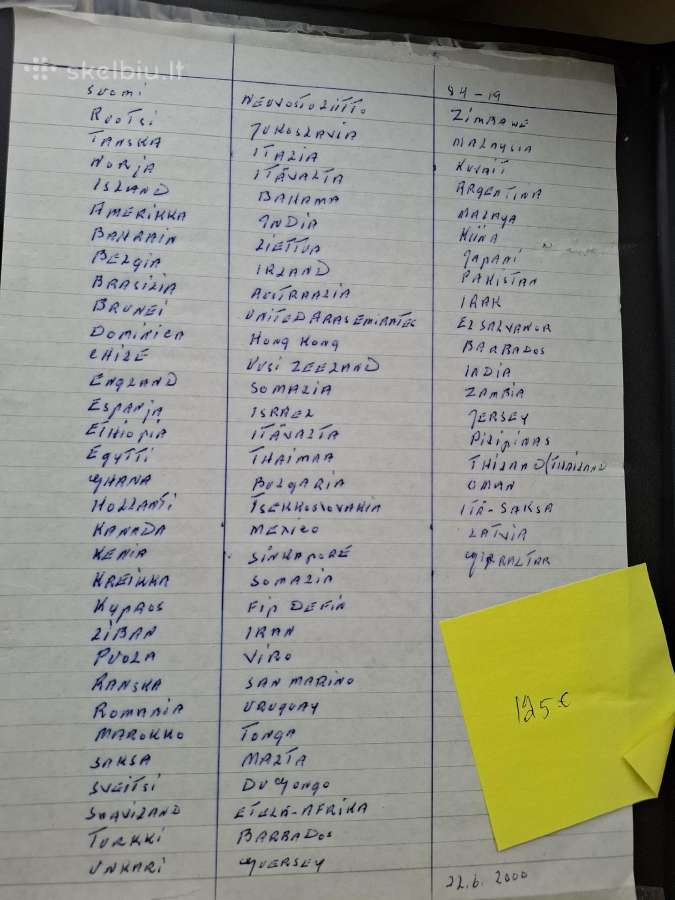 skelbiu.lt
SUOMI
RUOTSI
TANSKA
NORJA
ISLAND
AMERIKKA
BAHRAIN
BELGIA
BRASILIA
BRUNEI
DOMINICA
CHILE
ENGLAND
ESPANJA
ETHIOPIA
EGYTTI
GHANA
HOLLANTI
KANADA
KENIA
KREIKKA
KYPROS
LIBAN
PUOLA
RANSKA
ROMANIA
MAROKKO
SAKSA
SVEITSI
SWAZILAND
TURKKI
UNKARI
NEUVOSTOLIITTO
JUKOSLAVIA
ITALIA
ITÄVALTA
BAHAMA
INDIA
LIETTUA
IRLAND
AUSTRAALIA
UNITED ARAS EMIRANTES
HONG KONG
UUSI ZEELAND
SOMALIA
ISRAEL
ITÄVALTA
THAIMAA
BULGARIA
TSEKKOSLOVAKIA
MEXICO
SINKAPORE
SOMALIA
FIP DEFIN
IRAN
VIRO
SAN MARINO
URUGUAY
TONGA
MALTA
DU CONGO
ETELÄ-AFRIKA
BARBADOS
GUERSEY
84-19
ZIMBAWE
MALAYSIA
KUVAIT
ARGENTINA
MALAYA
KIINA
JAPANI
PAKISTAN
IRAK
ELSALVANOR
BARBADOS
INDIA
ZAMBIA
JERSEY
PILIPINAS
THILAND/THAILAND
OMAN
ITÄ-SAKSA
LATVIA
GIBRALTAR
125€
22.6. 2000